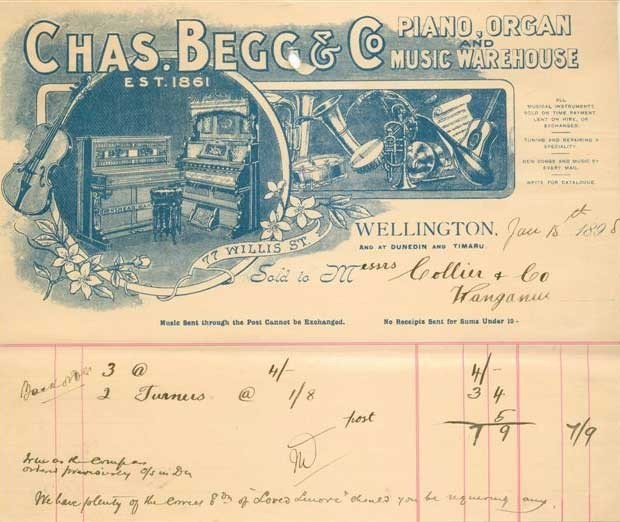 CHAS. BEGG & CO PIANO, ORGAN
AND
MUSIC WAREHOUSE
EST. 1861
ALL
MUSICAL INSTRUMENTS
SOLD ON TIME PAYMENT
LENT ON HIRE, OR
EXCHANGED.
TUNING AND REPAIRING A
SPECIALITY.
NEW SONGS AND MUSIC BY
EVERY MAIL.
WRITE FOR CATALOGUE.
77 WILLIS ST.
WELLINGTON, Jan 15th 1898
AND AT DUNEDIN AND TIMARU.
Sold to Messrs Collier & Co
Wanganui
Music Sent through the Post Cannot be Exchanged. No Receipts Sent for Sums Under 10/-
3 @ 4/- 4/-
2 Turners @ 1/8 3 4
post 5
7 9 7/9
We have plenty of the "Loved Lenore" should you be requiring any.